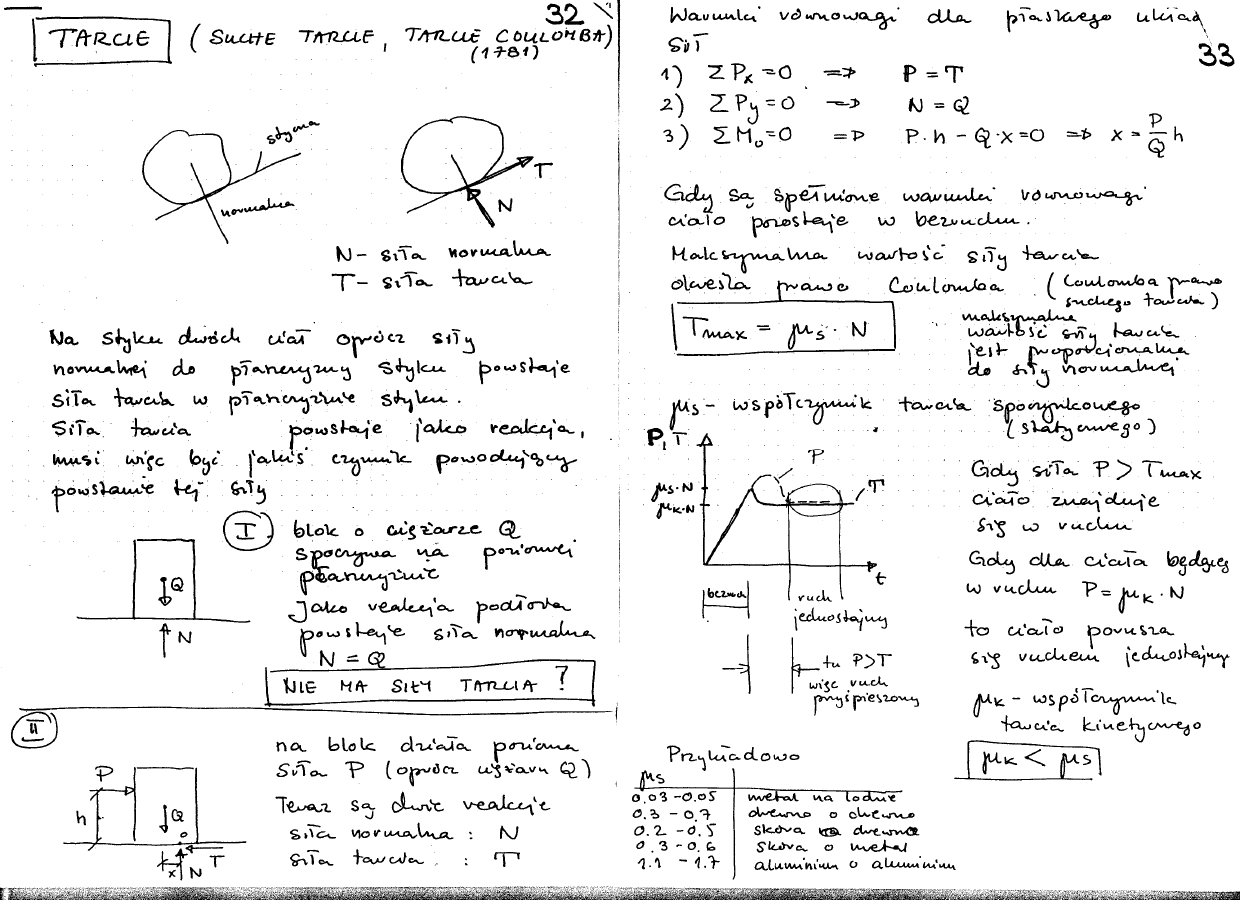 32
TARCIE (SUCHE TARCIE, TARCIE COULOMBA)
(1781)
styczna
normalna
T
N
N - siła normalna
T - siła tarcia
Na styku dwóch ciał oprócz siły
normalnej do płaszczyzny styku powstaje
siła tarcia w płaszczyźnie styku.
Siła tarcia powstaje jako reakcja,
musi więc być jakiś czynnik powodujący
powstanie tej siły
I
blok o ciężarze Q
spoczywa na poziomej
płaszczyźnie
Jako reakcja podłoża
powstaje siła normalna
N = Q
Q
N
NIE MA SIŁY TARCIA ?
II
na blok działa pozioma
siła P (oprócz ciężaru Q)
Teraz są dwie reakcje
siła normalna : N
siła tarcia : T
P
h
Q
o
T
x
N
33
Warunki równowagi dla płaskiego układ
sił
1) ΣPx = 0 ⇒ P = T
2) ΣPy = 0 ⇒ N = Q
3) ΣMo = 0 ⇒ P · h - Q · x = 0 ⇒ x = P/Q h
Gdy są spełnione warunki równowagi
ciało pozostaje w bezruchu.
Maksymalna wartość siły tarcia
określa prawo Coulomba (Coulomba prawo
suchego tarcia)
Tmax = μs · N
maksymalna
wartość siły tarcia
jest proporcjonalna
do siły normalnej
μs - współczynnik tarcia spoczynkowego
(statycznego)
P, T
P
μs·N
μK·N
T
t
bezruch
ruch
jednostajny
tu P>T
więc ruch
przyśpieszony
Gdy siła P > Tmax
ciało znajduje
się w ruchu
Gdy dla ciała będące
w ruchu P = μK · N
to ciało porusza
się ruchem jednostajny
μK - współczynnik
tarcia kinetycznego
μK < μs
Przykładowo
μs
0.03 - 0.05 metal na lodzie
0.3 - 0.7 drewno o drewno
0.2 - 0.5 skóra o drewno
0.3 - 0.6 skóra o metal
1.1 - 1.7 aluminium o aluminium